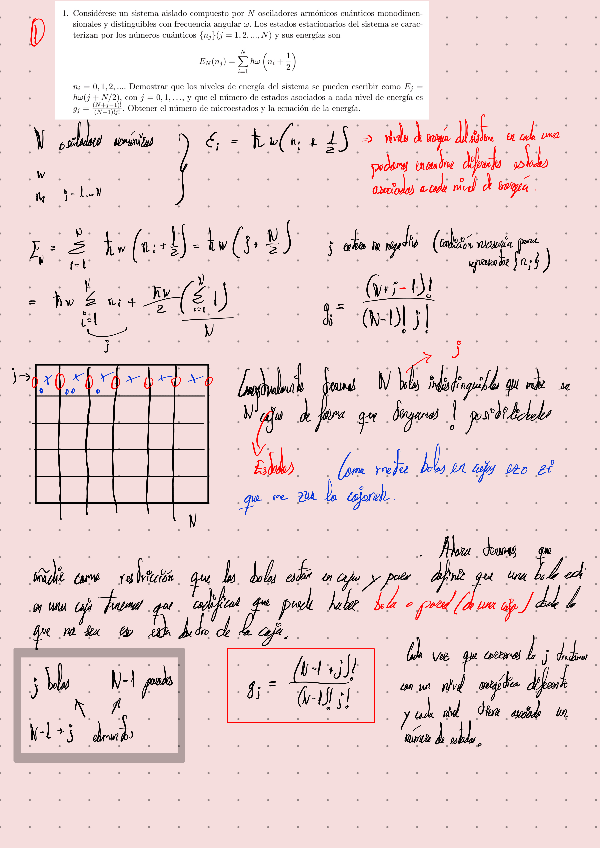 1
1. Considérese un sistema aislado compuesto por N osciladores armónicos cuánticos monodimen-
sionales y distinguibles con frecuencia angular ω. Los estados estacionarios del sistema se carac-
terizan por los números cuánticos {n_j}(j = 1, 2, ..., N) y sus energías son
E_N(n_j) = Σ_{i=1}^{N} ħω (n_i + 1/2)
n_i = 0, 1, 2, ... Demostrar que los niveles de energía del sistema se pueden escribir como E_j =
ħω(j + N/2), con j = 0, 1, ..., y que el número de estados asociados a cada nivel de energía es
g_j = (N+j-1)!/(N-1)!j!. Obtener el número de microestados y la ecuación de la energía.
N osciladores armónicos
w
n_j j = 1...N
ε_i = ħw(n_i + 1/2) → niveles de energía del sistema en cada uno
podemos encontrar diferentes estados
asociados a cada nivel de energía.
E_N = Σ_{i=1}^{N} ħw (n_i + 1/2) = ħw (j + N/2) j entero no negativo (condición necesaria para
representar {n_j})
= ħw Σ_{i=1}^{N} n_i + ħw/2 (Σ_{i=1}^{N} 1)
j N
g_j = (N+j-1)!/(N-1)! j!
j
j →
N
N bolas indistinguibles que meter en
N cajas de forma que tengamos ! posibilidades
Estados Como meter bolas en cajas eso es
que me da la
Ahora tenemos que
añadir como restricción que las bolas están en cajas y para definir que una bola está
en una caja tenemos que codificar que puede haber bola o pared (de una caja) donde lo
que no sea eso está dentro de la caja.
j bolas N-1 paredes
N-1+j elementos
g_j = (N-1+j)!/(N-1)! j!
Cada vez que cogemos la j tratamos
con un nivel energético diferente
y cada nivel tiene asociado un
número de estados.